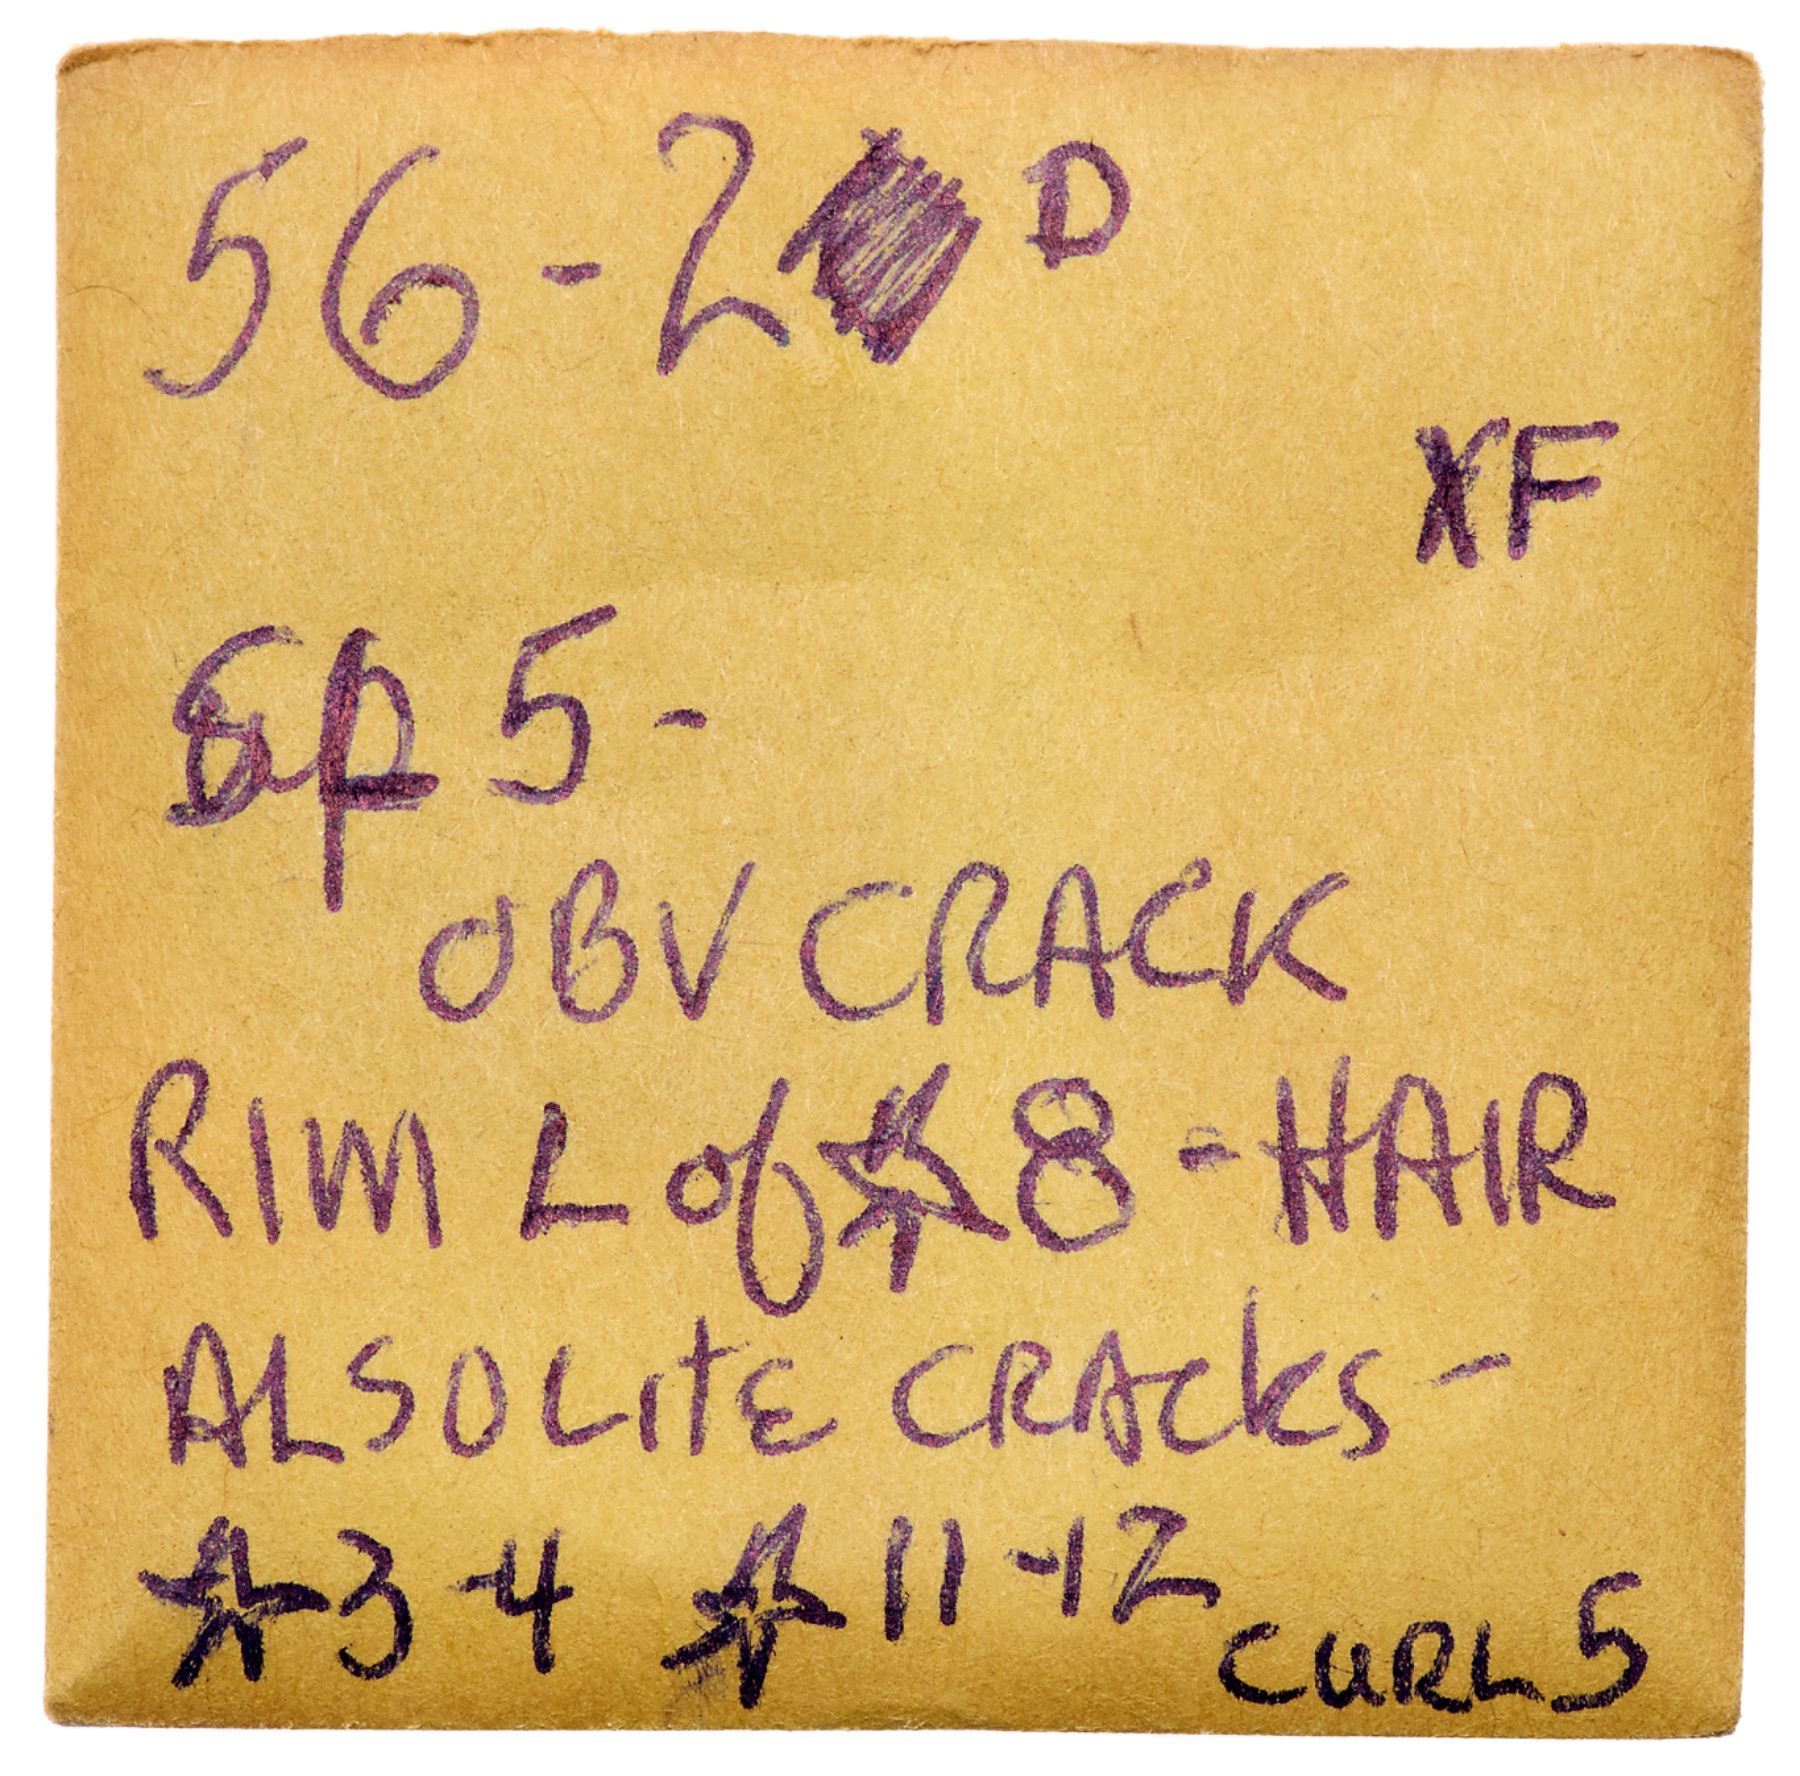 56-2 D
XF
5-
OBV CRACK
RIM L of ☆ 8 - HAIR
ALSO LITE CRACKS -
☆ 3-4 ☆ 11-12
CURL 5